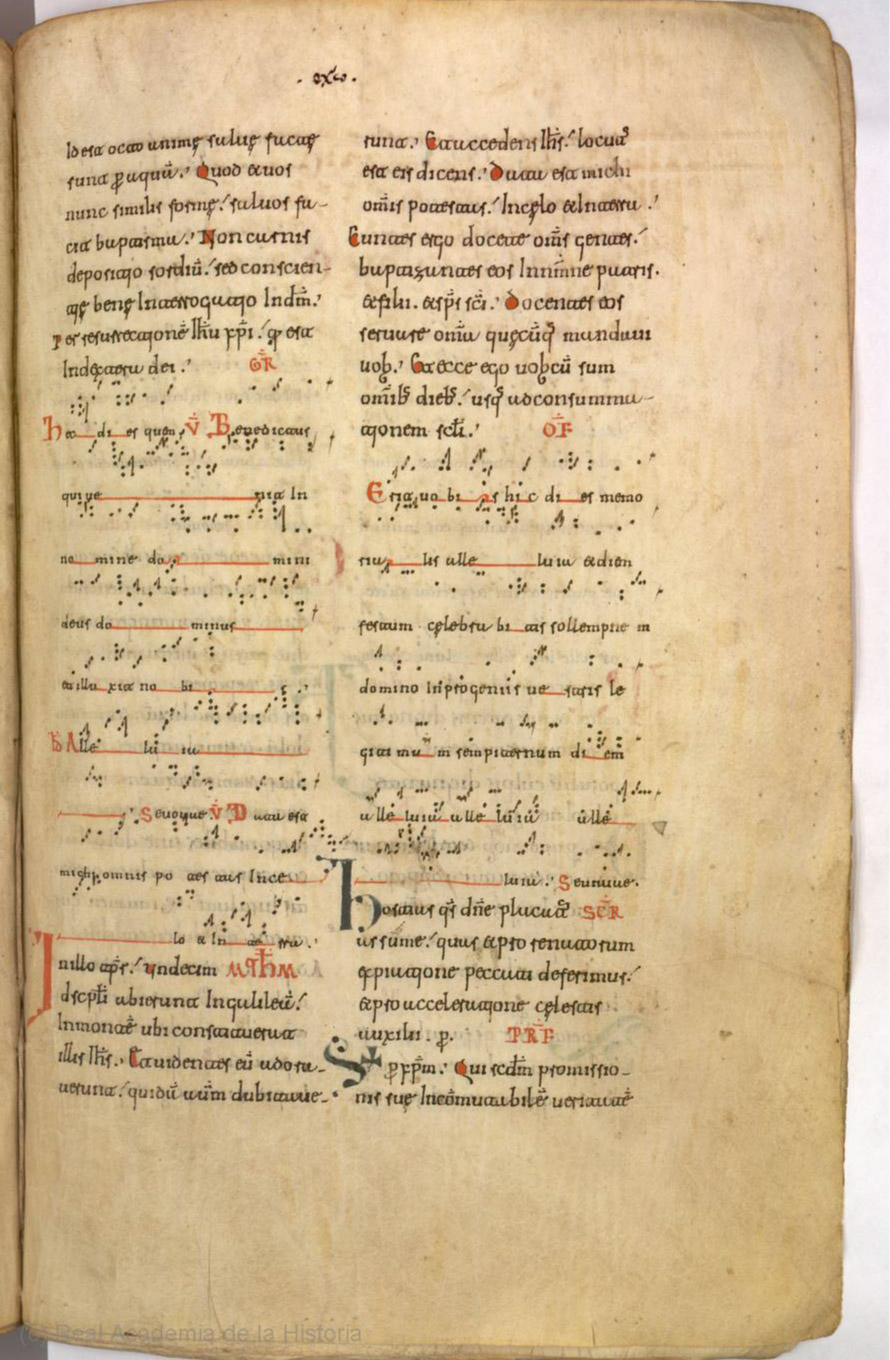 . cxv .
id est octo anime salve facte
sunt per aquã. Quod et vos
nunc similis forme salvos fa-
cit baptisma. Non carnis
depositio sordiũ. sed conscien-
tię benę interrogatio in dm̃.
Per resurrectionẽ ihũ xp̃i. qi est
in dextera dei. GR̃
Hec dies quam V̄ Benedictus
qui ve nit in
no mine do mini
deus do minus
et illu xit no bi s.
Alle lu ia
Sevoque V̄ Data est
michi omnis po tes tas in ce
lo et in ter ra.
In illo tp̃r. undecim MTHM
discpli abierunt in galileã.
in montẽ ubi constituerat
illis ihs̃. Et videntes eũ adora-
verunt. quidã autm̃ dubitave-
runt. Et accedens ihs̃. locut᾽
est eis dicens. Data est michi
om̃is potestas. in celo et in terra.
Euntes ergo docete om̃s gentes.
baptizantes eos in nom̃ne patris.
et filii. et sp̃s sc̃i. Docentes eos
servare om̃ia quęcũq mandavi
vob. Et ecce ego vobcũ sum
om̃ib dieb. usq ad consumma-
tionem scłi. OF̃
Erit vo bis hic di es memo
ria lis alle luia et diem
festum celebra bi tis sollempne m
domino in progeniis ve stris le
giti mu m sempiternum di em
alle luia alle luia alle
luia. Sevavve.
Hostias qs̃ dñe placat᾽ SCR̃
assume. quas et pro renatorum
expiatione peccati deferimus.
et pro acceleratione celestis
auxilii. p. PRF̃
St p xp̃m. Qui scdm̃ promissio-
nis suę incom̃utabilẽ veritatẽ
(c) Real Academia de la Historia